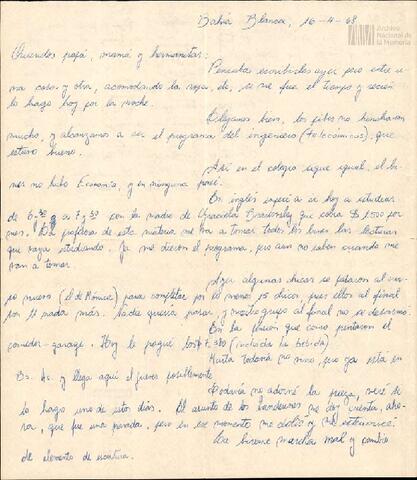 Bahía Blanca, 16-4-68
Archivo
Nacional de
la Memoria
Queridos papá, mamá y hermanitas:
Pensaba escribirles ayer pero entre u
na cosa y otra, acomodando la ropa, etc, se me fue el tiempo y recién
lo hago hoy por la noche.
Llegamos bien, los pibes no hincharon
mucho, y alcanzamos a ver el programa del ingeniero (Telecómicos), que
estuvo bueno.
Aquí en el colegio sigue igual, el lu
nes no hubo Economía, y en ninguna pasé.
En inglés empecé a ir hoy a estudiar
de 6,30 a 7,30 con la madre de Graciela que cobra $ 1500 por
mes. La profesora de esta materia me va a tomar todos los lunes las lecturas
que vaya estudiando. Ya me dieron el programa, pero aun no saben cuando me
van a tomar.
Ayer algunas chicas se pasaron al cur
so nuevo (el de Mónica) para completar por lo menos 15 chicos, pues ellos al final
son 11 nada más. Nadie quería pasar, y nuestro grupo al final no se desarmó.
En la pensión que como pintaron el
comedor-garage. Hoy le pagué los $ 7.350 (incluída la bebida)
Marta todavía no vino, pues ya está en
Bs. As. y llega aquí el jueves posiblemente.
Todavía no adorné la pieza, veré si
lo hago uno de estos días. El asunto de los banderines me doy cuenta, aho
ra, que fue una pavada, pero en ese momento me cegó y me
La birome marcha mal y cambio
de elemento de escritura.